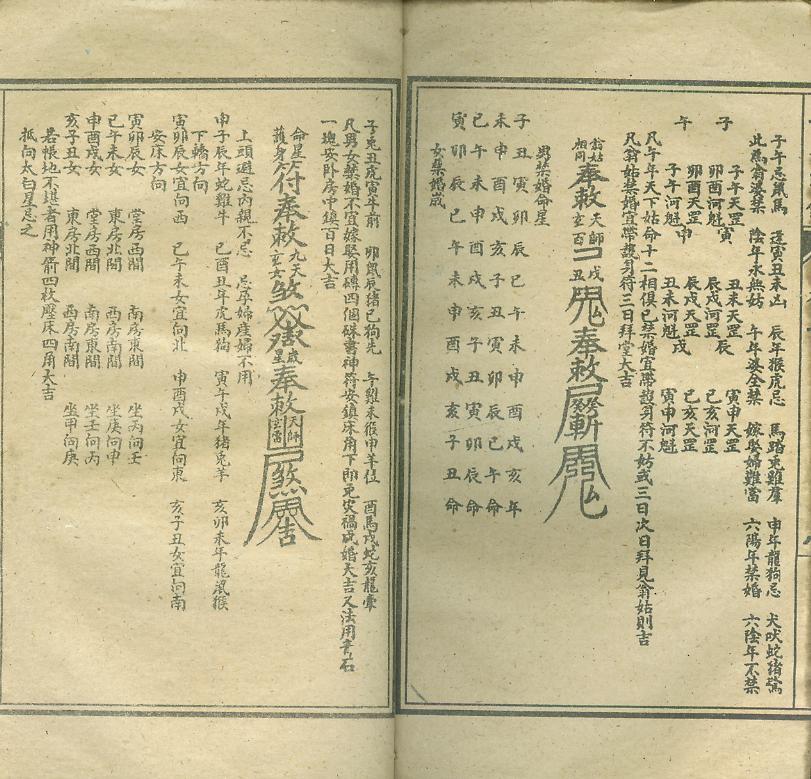 子午忌鼠馬　逢寅丑未凶　辰年猴虎忌　馬踏兎雖羣　申年龍狗忌　犬吠蛇猪驚
此為翁婆禁　陰年永無姑　午年婆全禁　嫁娶婦難當　六陽年禁婚　六陰年不禁
子午天罡　丑未天罡　寅申天罡
子　寅　辰
卯酉河魁　辰戌河罡　巳亥河罡
卯酉天罡　辰戌天罡　巳亥天罡
午　申　戌
子午河魁　丑未河魁　寅申河魁
凡午年天下姑命十二相俱已禁婚宜帶護身符不妨或三日次日拜見翁姑則吉
凡翁姑禁婚宜帶護身符三日拜堂大吉
翁姑相同
奉敕
天師
戊
丑
奉敕
斬
男禁婚命星
子丑寅卯辰巳午未申酉戌亥年
未申酉戌亥子丑寅卯辰巳午命
巳午未申酉戌亥子丑寅卯辰命
寅卯辰巳午未申酉戌亥子丑命
女禁婚歲
子兎丑虎寅牛前　卯鼠辰猪巳狗先　午雞未猴申羊位　酉馬戌蛇亥龍牽
凡男女禁婚不宜嫁娶用磚四個硃書神符安鎮床角下即免災禍成婚大吉又法用青石
一塊安卧房中鎮百日大吉
命星護身
符奉敕
九天玄女
煞
歲星
奉敕
天師
煞
吉
上頭避忌內親不忌　忌孕婦產婦不用
申子辰年蛇雞牛　巳酉丑年虎馬狗　寅午戌年猪兎羊　亥卯未年龍鼠猴
下轎方向
寅卯辰女宜向西　巳午未女宜向北　申酉戌女宜向東　亥子丑女宜向南
安床方向
寅卯辰女　堂房西間　南房東間　坐丙向壬
巳午未女　東房北間　西房南間　坐庚向申
申酉戌女　堂房西間　南房東間　坐壬向丙
亥子丑女　東房北間　西房南間　坐甲向庚
若帳地不堪者用神箭四枚壓床四角大吉
抵向太白星忌之